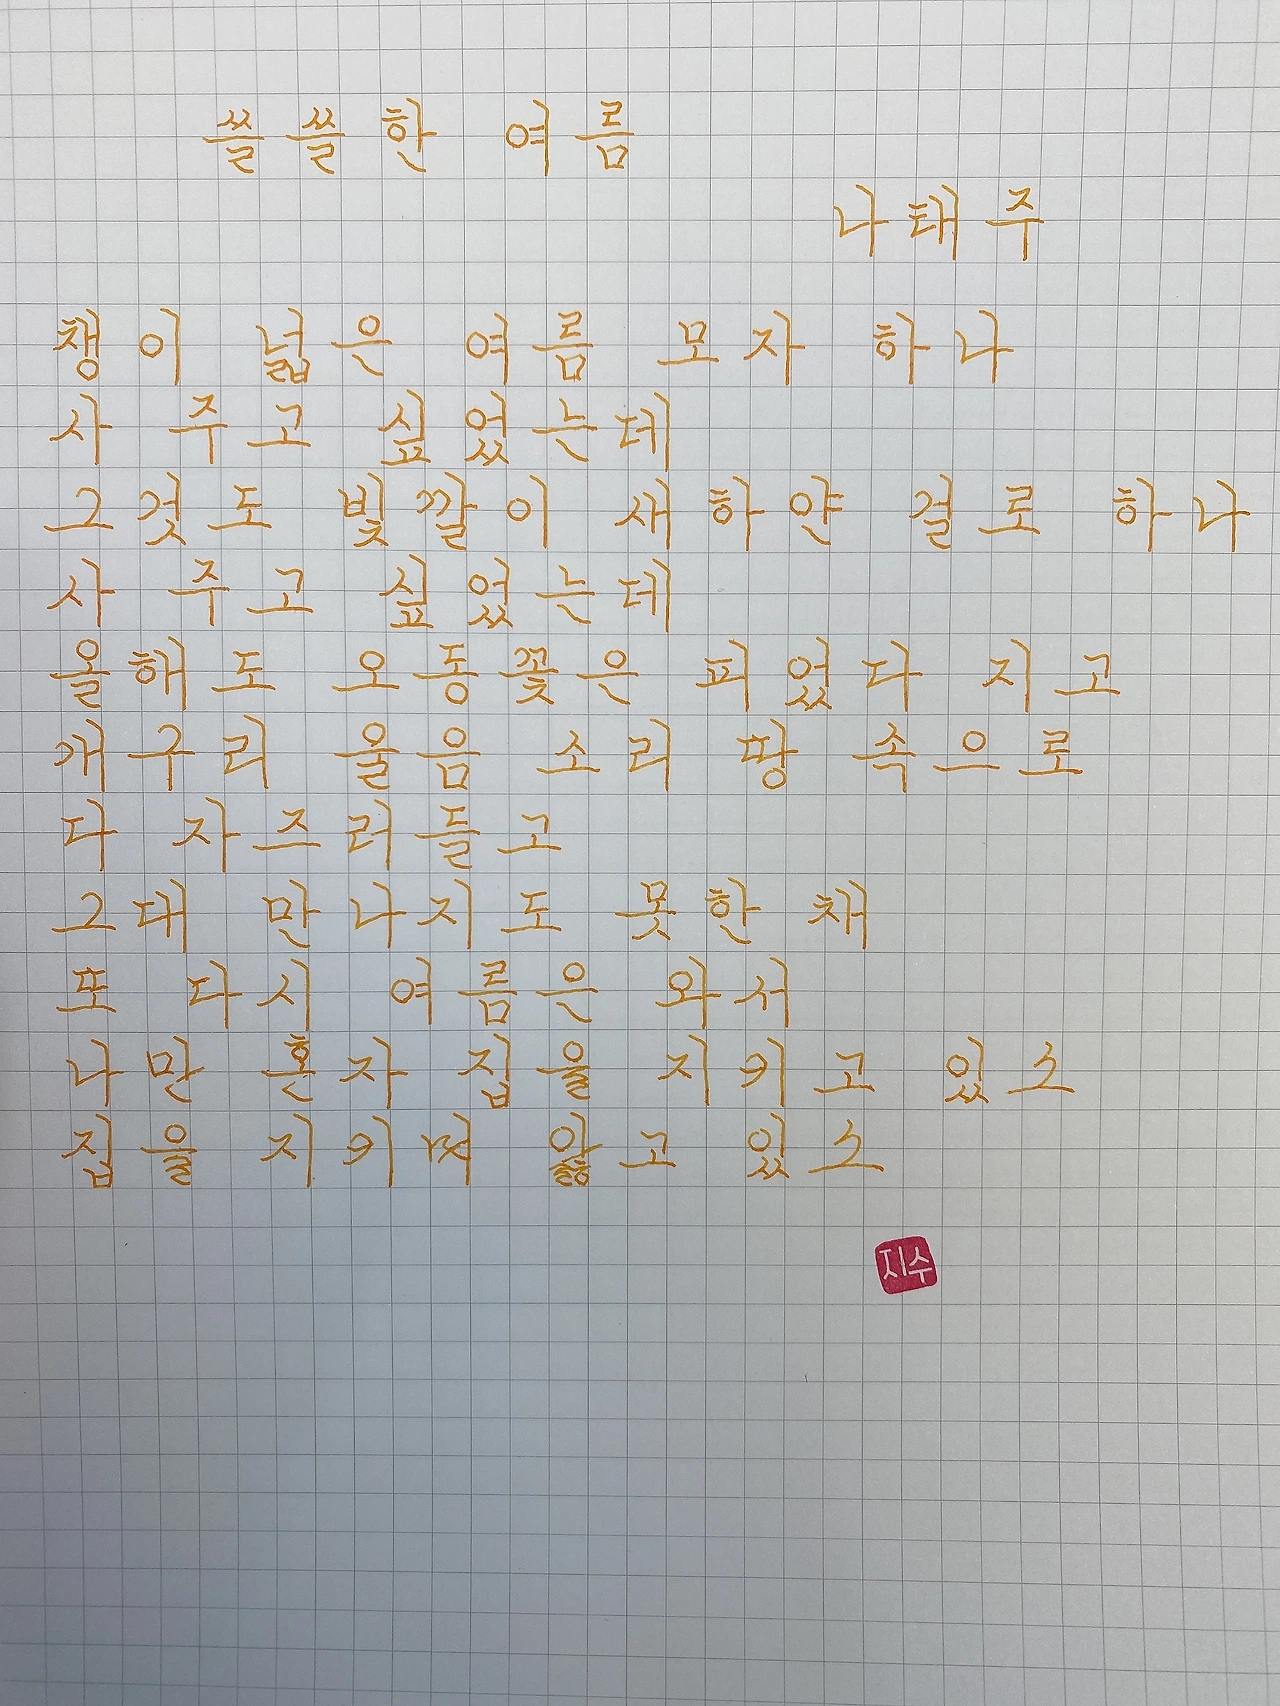 쓸쓸한 여름
나태주
챙이 넓은 여름 모자 하나
사 주고 싶었는데
그것도 빛깔이 새하얀 걸로 하나
사 주고 싶었는데
올해도 오동꽃은 피었다 지고
개구리 울음 소리 땅 속으로
다 자즈러들고
그대 만나지도 못한 채
또 다시 여름은 와서
나만 혼자 집을 지키고 있소
집을 지키며 앓고 있소
지수